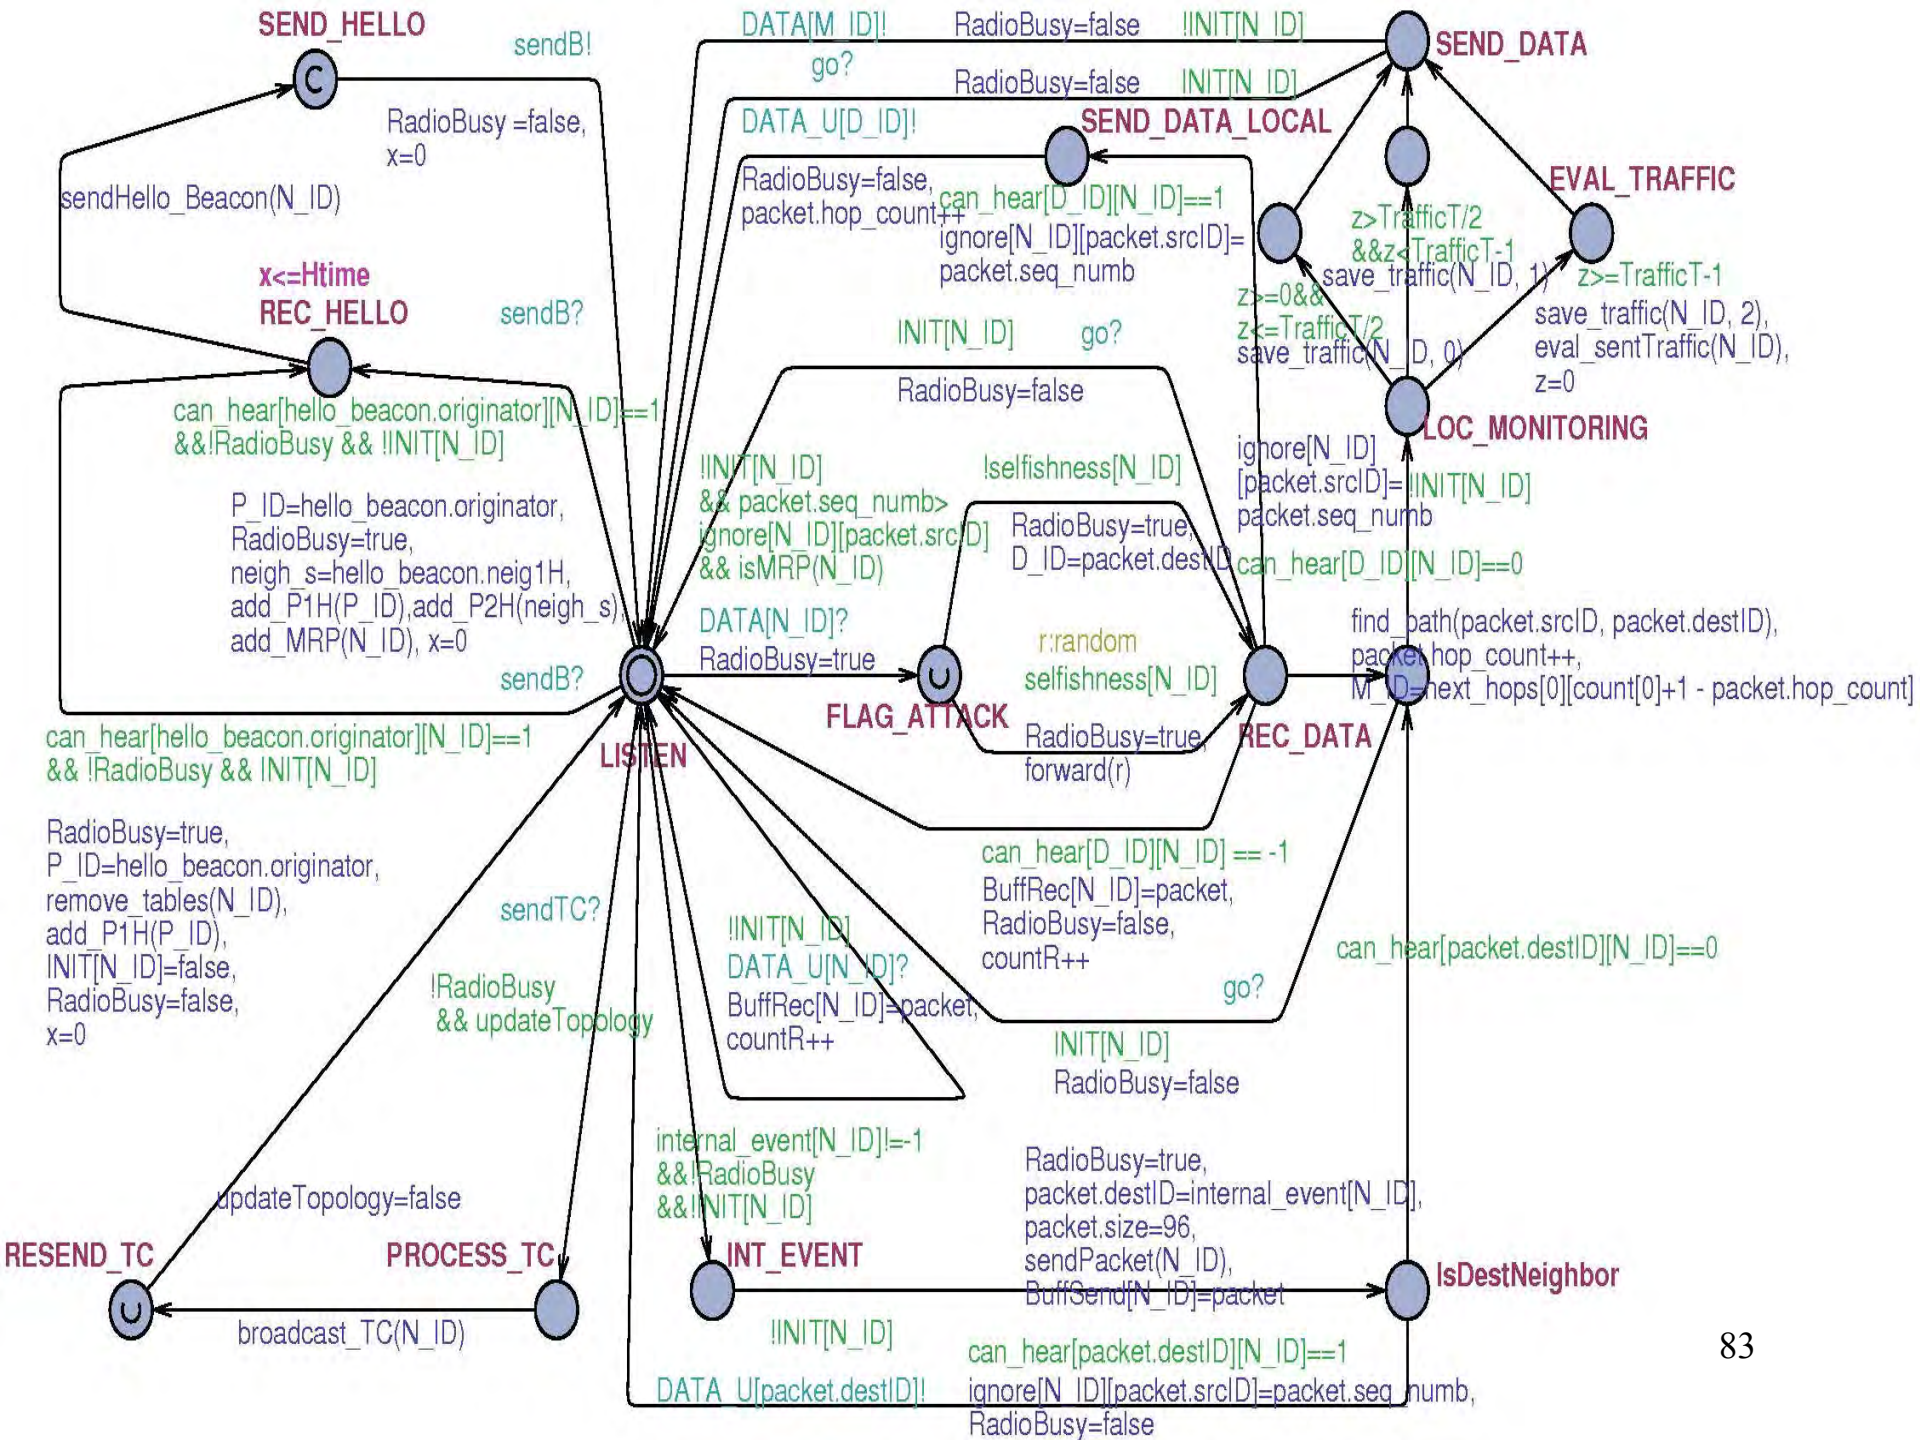 SEND_HELLO
sendB!
RadioBusy =false,
x=0
sendHello_Beacon(N_ID)
x<=Htime
REC_HELLO
sendB?
can_hear[hello_beacon.originator][N_ID]==1
&&!RadioBusy && !INIT[N_ID]
P_ID=hello_beacon.originator,
RadioBusy=true,
neigh_s=hello_beacon.neig1H,
add_P1H(P_ID),add_P2H(neigh_s),
add_MRP(N_ID), x=0
sendB?
can_hear[hello_beacon.originator][N_ID]==1
&& !RadioBusy && INIT[N_ID]
RadioBusy=true,
P_ID=hello_beacon.originator,
remove_tables(N_ID),
add_P1H(P_ID),
INIT[N_ID]=false,
RadioBusy=false,
x=0
LISTEN
sendTC?
!RadioBusy
&& updateTopology
updateTopology=false
RESEND_TC
PROCESS_TC
broadcast_TC(N_ID)
DATA[M_ID]!
RadioBusy=false
!INIT[N_ID]
SEND_DATA
go?
RadioBusy=false
INIT[N_ID]
DATA_U[D_ID]!
SEND_DATA_LOCAL
RadioBusy=false,
packet.hop_count++
can_hear[D_ID][N_ID]==1
ignore[N_ID][packet.srcID]=
packet.seq_numb
EVAL_TRAFFIC
z>TrafficT/2
&&z<TrafficT-1
save_traffic(N_ID, 1)
z>=TrafficT-1
save_traffic(N_ID, 2),
eval_sentTraffic(N_ID),
z=0
z>=0&&
z<=TrafficT/2
save_traffic(N_ID, 0)
LOC_MONITORING
INIT[N_ID]
go?
RadioBusy=false
ignore[N_ID]
[packet.srcID]=
packet.seq_numb
!INIT[N_ID]
can_hear[D_ID][N_ID]==0
!INIT[N_ID]
&& packet.seq_numb>
ignore[N_ID][packet.srcID]
&& isMRP(N_ID)
DATA[N_ID]?
RadioBusy=true
FLAG_ATTACK
!selfishness[N_ID]
RadioBusy=true,
D_ID=packet.destID
r:random
selfishness[N_ID]
RadioBusy=true,
forward(r)
REC_DATA
find_path(packet.srcID, packet.destID),
packet.hop_count++,
M_ID=next_hops[0][count[0]+1 - packet.hop_count]
can_hear[D_ID][N_ID] == -1
BuffRec[N_ID]=packet,
RadioBusy=false,
countR++
!INIT[N_ID]
DATA_U[N_ID]?
BuffRec[N_ID]=packet,
countR++
go?
INIT[N_ID]
RadioBusy=false
can_hear[packet.destID][N_ID]==0
internal_event[N_ID]!=-1
&&!RadioBusy
&&!INIT[N_ID]
INT_EVENT
RadioBusy=true,
packet.destID=internal_event[N_ID],
packet.size=96,
sendPacket(N_ID),
BuffSend[N_ID]=packet
!INIT[N_ID]
IsDestNeighbor
can_hear[packet.destID][N_ID]==1
DATA_U[packet.destID]!
ignore[N_ID][packet.srcID]=packet.seq_numb,
RadioBusy=false
C
U
U
83